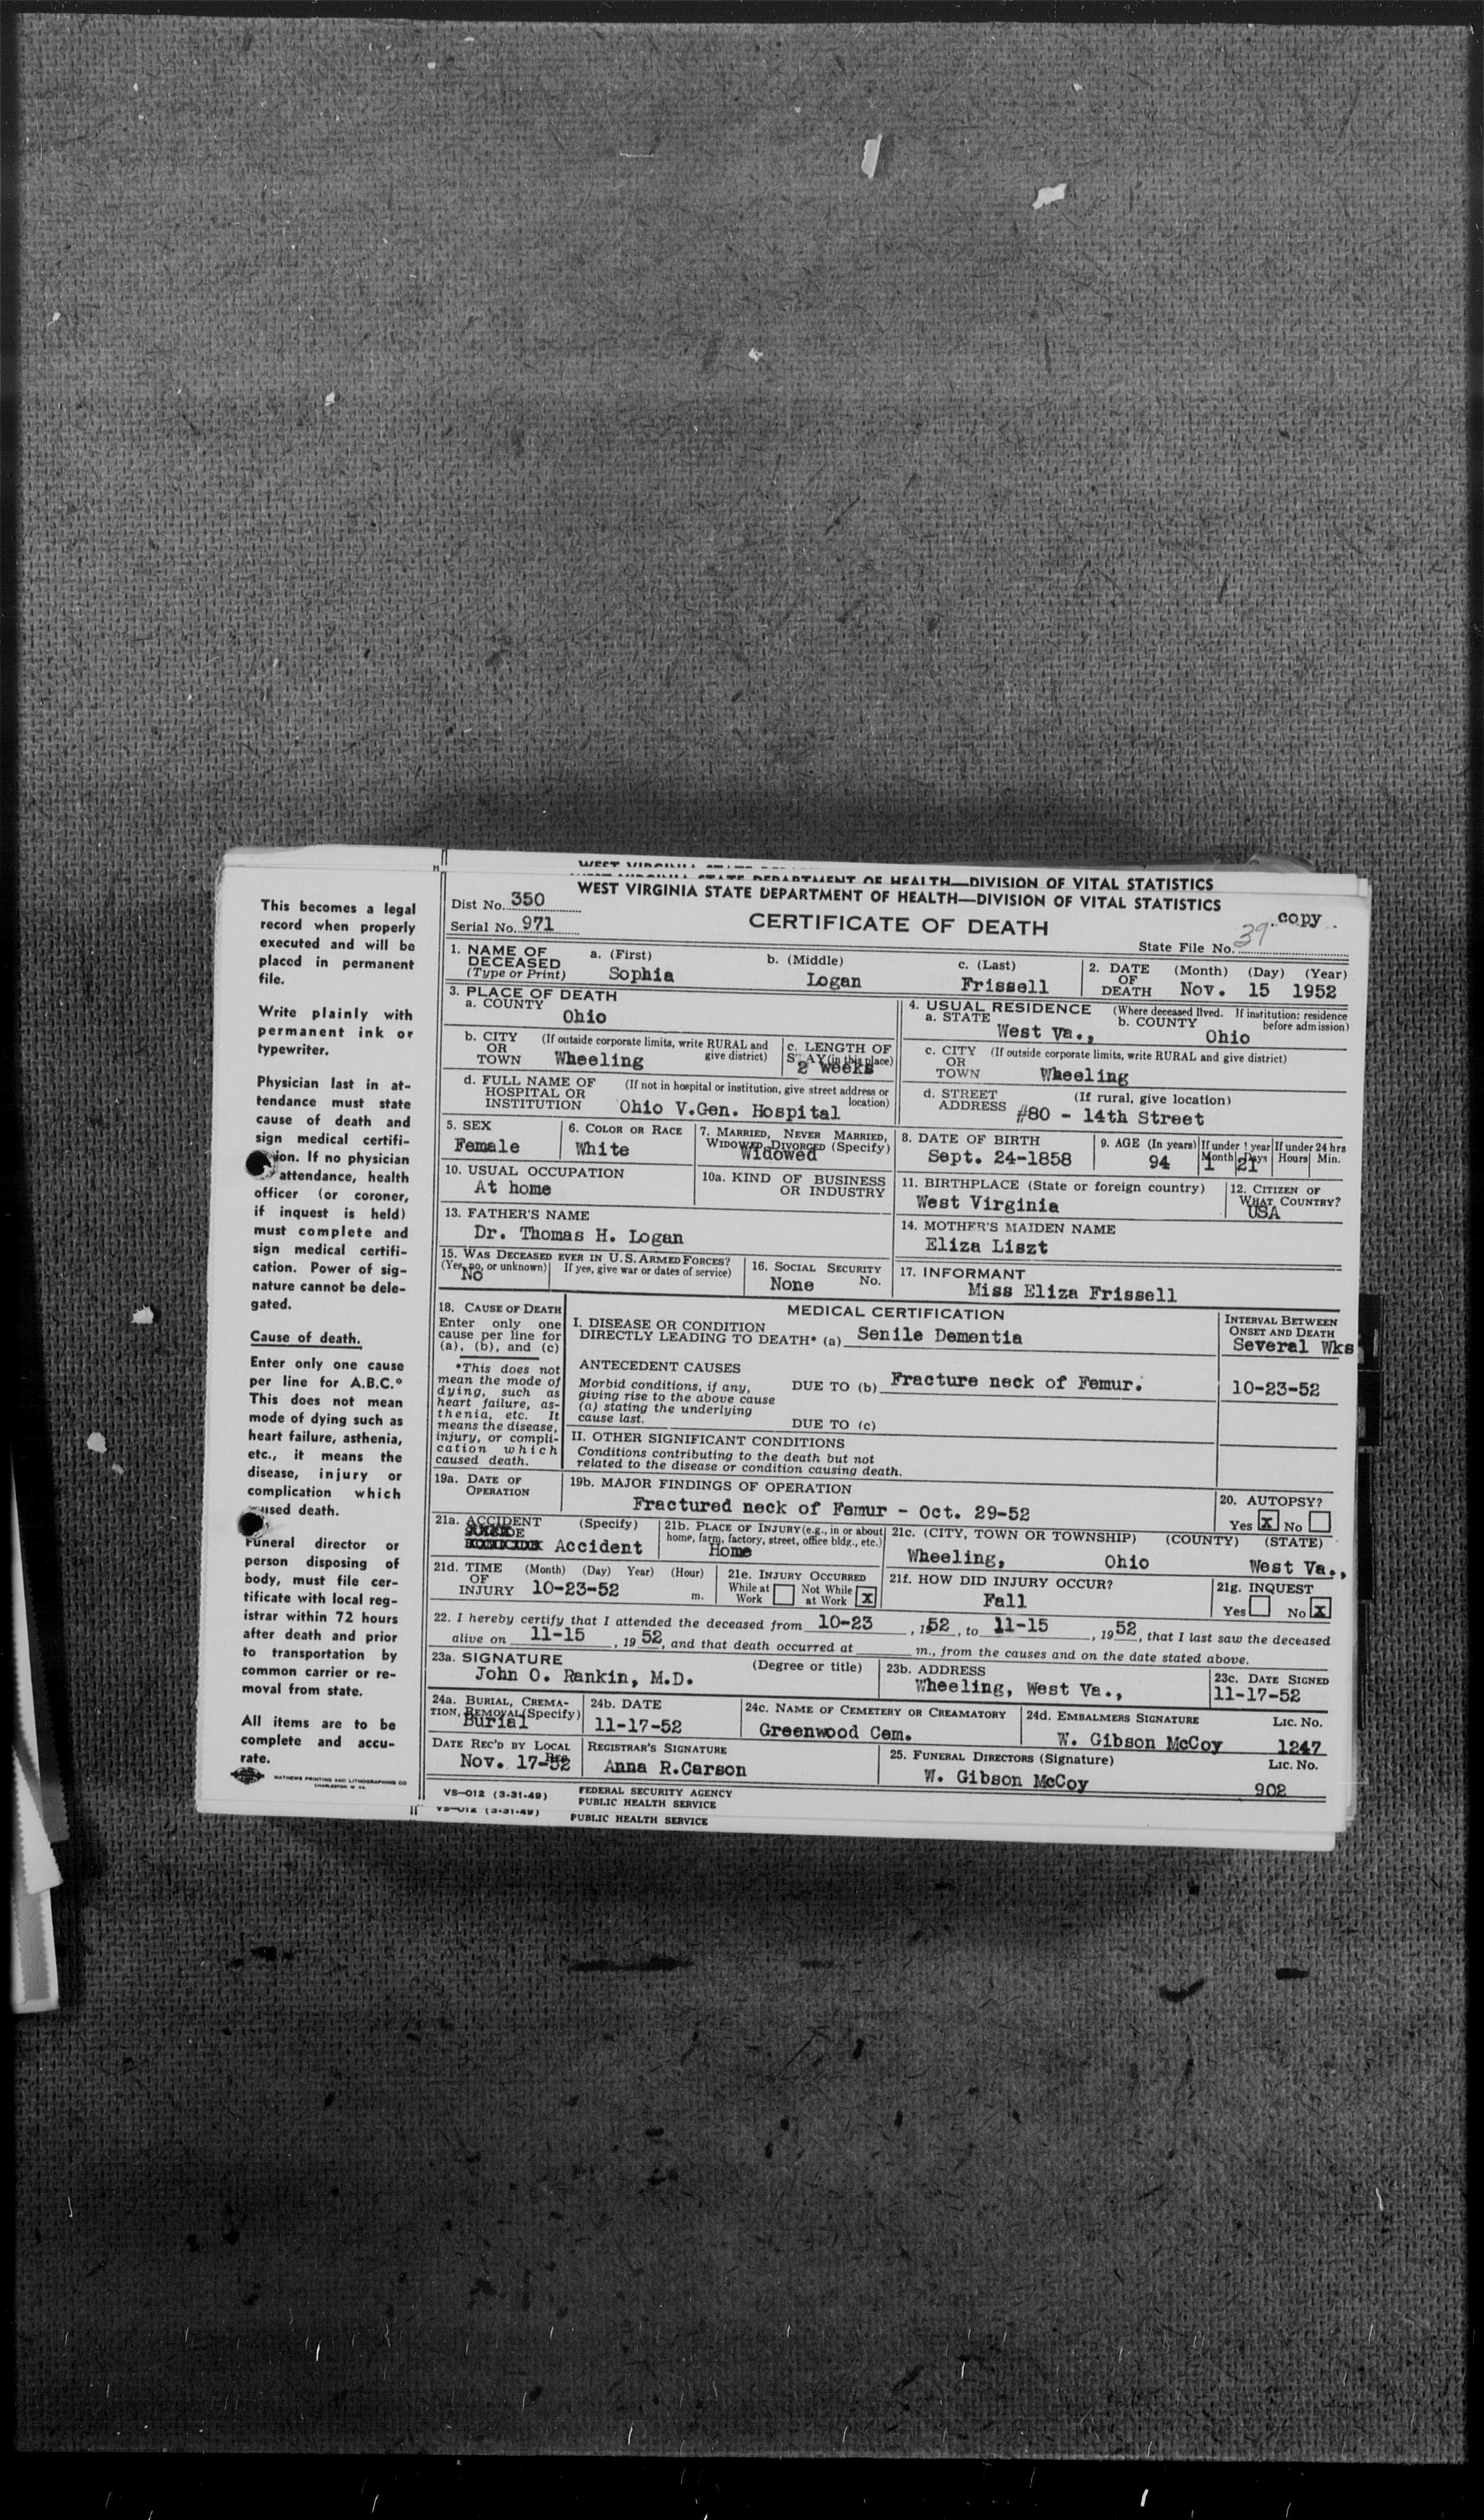 WEST VIRGINIA STATE DEPARTMENT OF HEALTH—DIVISION OF VITAL STATISTICS
WEST VIRGINIA STATE DEPARTMENT OF HEALTH—DIVISION OF VITAL STATISTICS
Dist No. 350
CERTIFICATE OF DEATH
copy
Serial No. 971
State File No. 39
1. NAME OF DECEASED (Type or Print)
a. (First) Sophia
b. (Middle) Logan
c. (Last) Frissell
2. DATE OF DEATH (Month) (Day) (Year)
Nov. 15 1952
3. PLACE OF DEATH
a. COUNTY Ohio
b. CITY OR TOWN (If outside corporate limits, write RURAL and give district)
Wheeling
c. LENGTH OF STAY (in this place)
2 weeks
d. FULL NAME OF HOSPITAL OR INSTITUTION (If not in hospital or institution, give street address or location)
Ohio V.Gen. Hospital
4. USUAL RESIDENCE (Where deceased lived. If institution: residence before admission)
a. STATE West Va.,
b. COUNTY Ohio
c. CITY OR TOWN (If outside corporate limits, write RURAL and give district)
Wheeling
d. STREET ADDRESS (If rural, give location)
#80 - 14th Street
5. SEX
Female
6. COLOR OR RACE
White
7. MARRIED, NEVER MARRIED, WIDOWED, DIVORCED (Specify)
Widowed
8. DATE OF BIRTH
Sept. 24-1858
9. AGE (In years)
94
If under 1 year
Month Days
1 21
If under 24 hrs
Hours Min.
10. USUAL OCCUPATION
At home
10a. KIND OF BUSINESS OR INDUSTRY
11. BIRTHPLACE (State or foreign country)
West Virginia
12. CITIZEN OF WHAT COUNTRY?
USA
13. FATHER'S NAME
Dr. Thomas H. Logan
14. MOTHER'S MAIDEN NAME
Eliza Liszt
15. WAS DECEASED EVER IN U.S. ARMED FORCES?
(Yes, no, or unknown) If yes, give war or dates of service)
No
16. SOCIAL SECURITY No.
None
17. INFORMANT
Miss Eliza Frissell
18. CAUSE OF DEATH
Enter only one cause per line for (a), (b), and (c)
*This does not mean the mode of dying, such as heart failure, asthenia, etc. It means the disease, injury, or complication which caused death.
MEDICAL CERTIFICATION
I. DISEASE OR CONDITION DIRECTLY LEADING TO DEATH* (a) Senile Dementia
INTERVAL BETWEEN ONSET AND DEATH
Several Wks
ANTECEDENT CAUSES
Morbid conditions, if any, giving rise to the above cause (a) stating the underlying cause last.
DUE TO (b) Fracture neck of Femur.
10-23-52
DUE TO (c)
II. OTHER SIGNIFICANT CONDITIONS
Conditions contributing to the death but not related to the disease or condition causing death.
19a. DATE OF OPERATION
19b. MAJOR FINDINGS OF OPERATION
Fractured neck of Femur - Oct. 29-52
20. AUTOPSY?
Yes X No
21a. ACCIDENT (Specify)
Accident
21b. PLACE OF INJURY (e.g., in or about home, farm, factory, street, office bldg., etc.)
Home
21c. (CITY, TOWN OR TOWNSHIP) (COUNTY) (STATE)
Wheeling, Ohio West Va.,
21d. TIME OF INJURY (Month) (Day) Year) (Hour)
10-23-52 m.
21e. INJURY OCCURRED
While at Work Not While at Work X
21f. HOW DID INJURY OCCUR?
Fall
21g. INQUEST
Yes No X
22. I hereby certify that I attended the deceased from 10-23, 1952, to 11-15, 1952, that I last saw the deceased
alive on 11-15, 19 52, and that death occurred at m., from the causes and on the date stated above.
23a. SIGNATURE (Degree or title)
John O. Rankin, M.D.
23b. ADDRESS
Wheeling, West Va.,
23c. DATE SIGNED
11-17-52
24a. BURIAL, CREMATION, REMOVAL (Specify)
Burial
24b. DATE
11-17-52
24c. NAME OF CEMETERY OR CREAMATORY
Greenwood Cem.
24d. EMBALMERS SIGNATURE LIC. NO.
W. Gibson McCoy 1247
DATE REC'D BY LOCAL REG.
Nov. 17-52
REGISTRAR'S SIGNATURE
Anna R.Carson
25. FUNERAL DIRECTORS (Signature) LIC. NO.
W. Gibson McCoy 902
VS—012 (3-31-49)
FEDERAL SECURITY AGENCY
PUBLIC HEALTH SERVICE
VS—012 (3-31-49)
PUBLIC HEALTH SERVICE
This becomes a legal
record when properly
executed and will be
placed in permanent
file.
Write plainly with
permanent ink or
typewriter.
Physician last in at-
tendance must state
cause of death and
sign medical certifi-
ion. If no physician
attendance, health
officer (or coroner,
if inquest is held)
must complete and
sign medical certifi-
cation. Power of sig-
nature cannot be dele-
gated.
Cause of death.
Enter only one cause
per line for A.B.C.*
This does not mean
mode of dying such as
heart failure, asthenia,
etc., it means the
disease, injury or
complication which
used death.
Funeral director or
person disposing of
body, must file cer-
tificate with local reg-
istrar within 72 hours
after death and prior
to transportation by
common carrier or re-
moval from state.
All items are to be
complete and accu-
rate.
MATHEWS PRINTING AND LITHOGRAPHING CO
CHARLESTON W VA